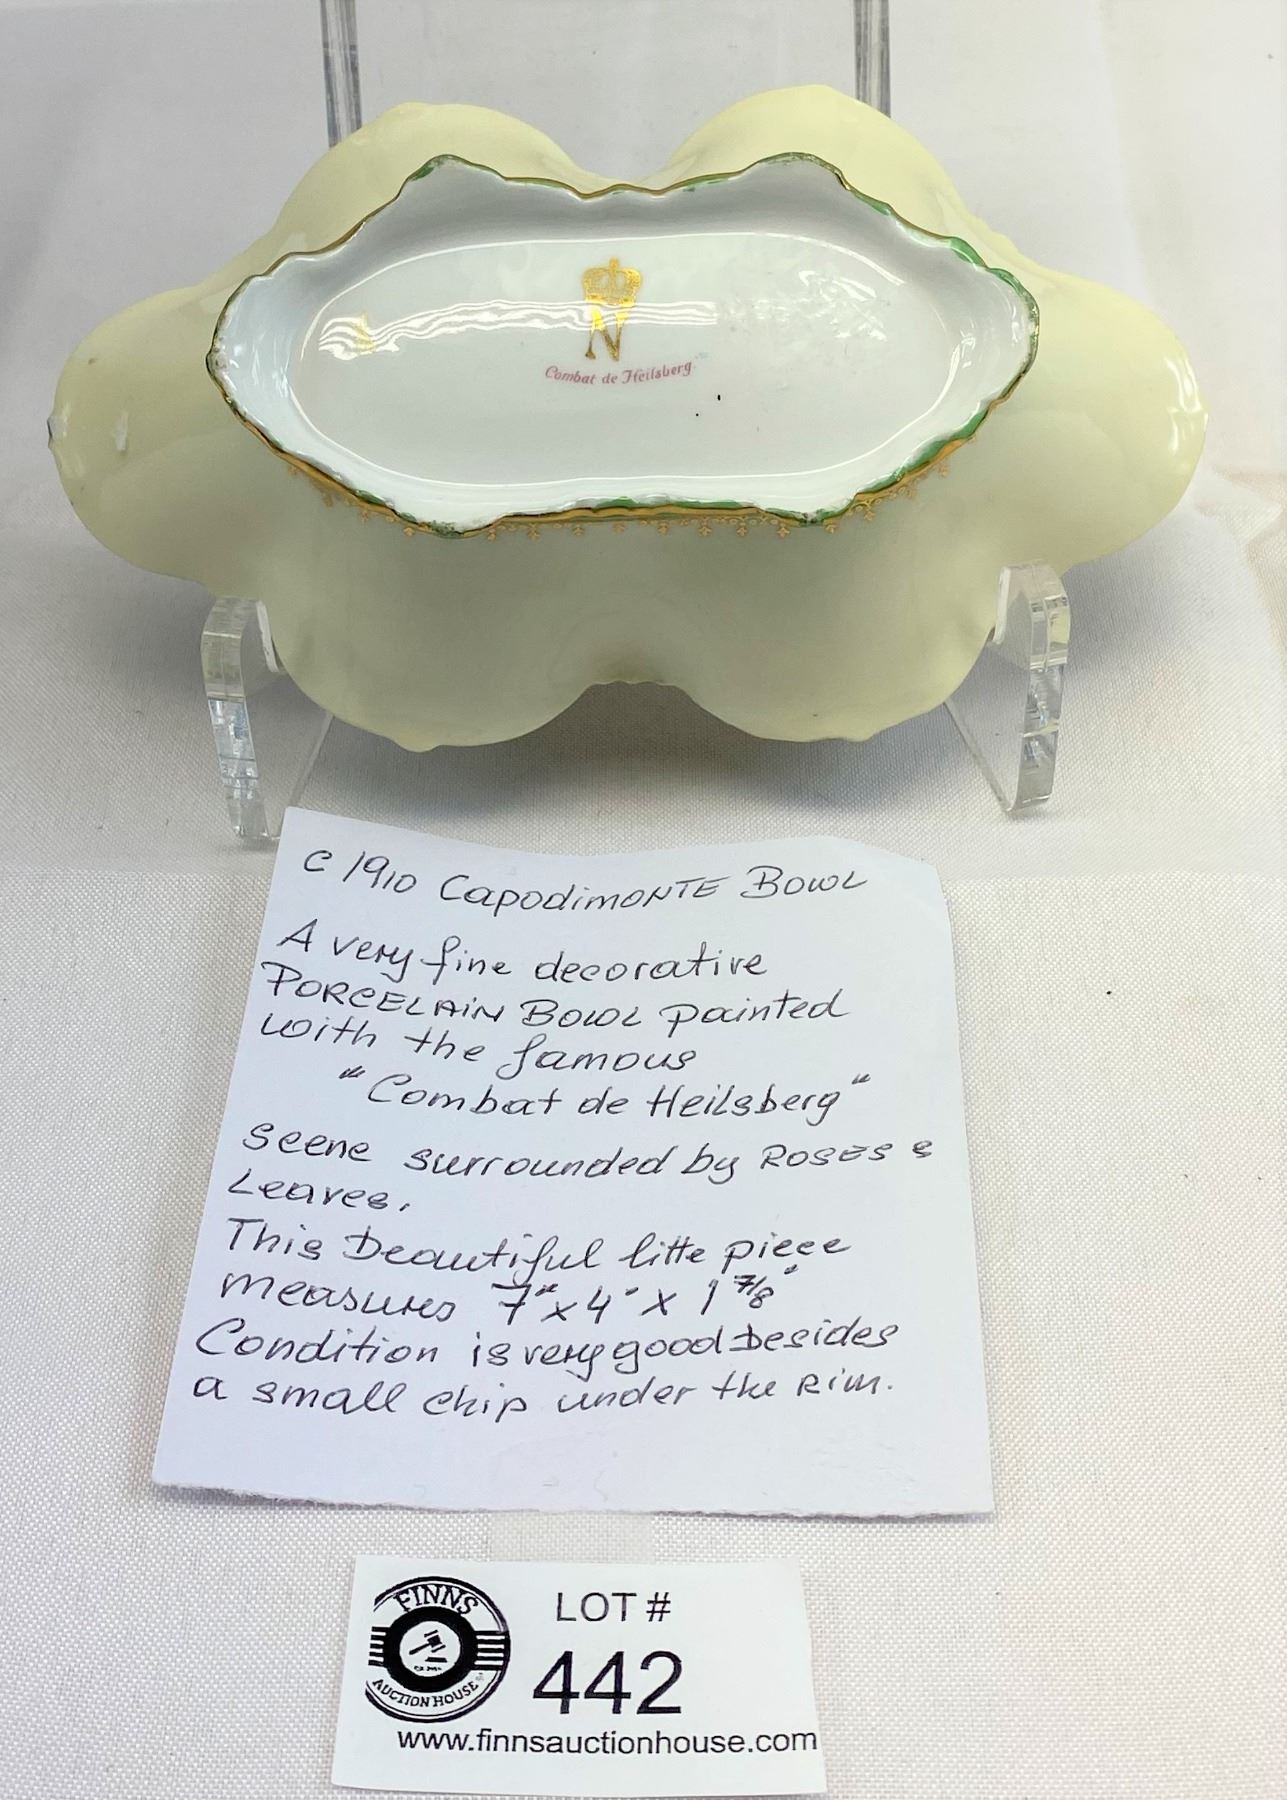 N
Combat de Heilsberg
C 1910 CapodimoNTE Bowl
A very fine decorative
PORCELAiN Bowl painted
with the famous
"Combat de Heilsberg"
Scene surrounded by ROSES &
Leaves.
This beautiful litte piece
measures 7" x 4" x 1 7/8"
Condition is very good besides
a small chip under the Rim.
FINNS
AUCTION HOUSE
LOT #
442
www.finnsauctionhouse.com